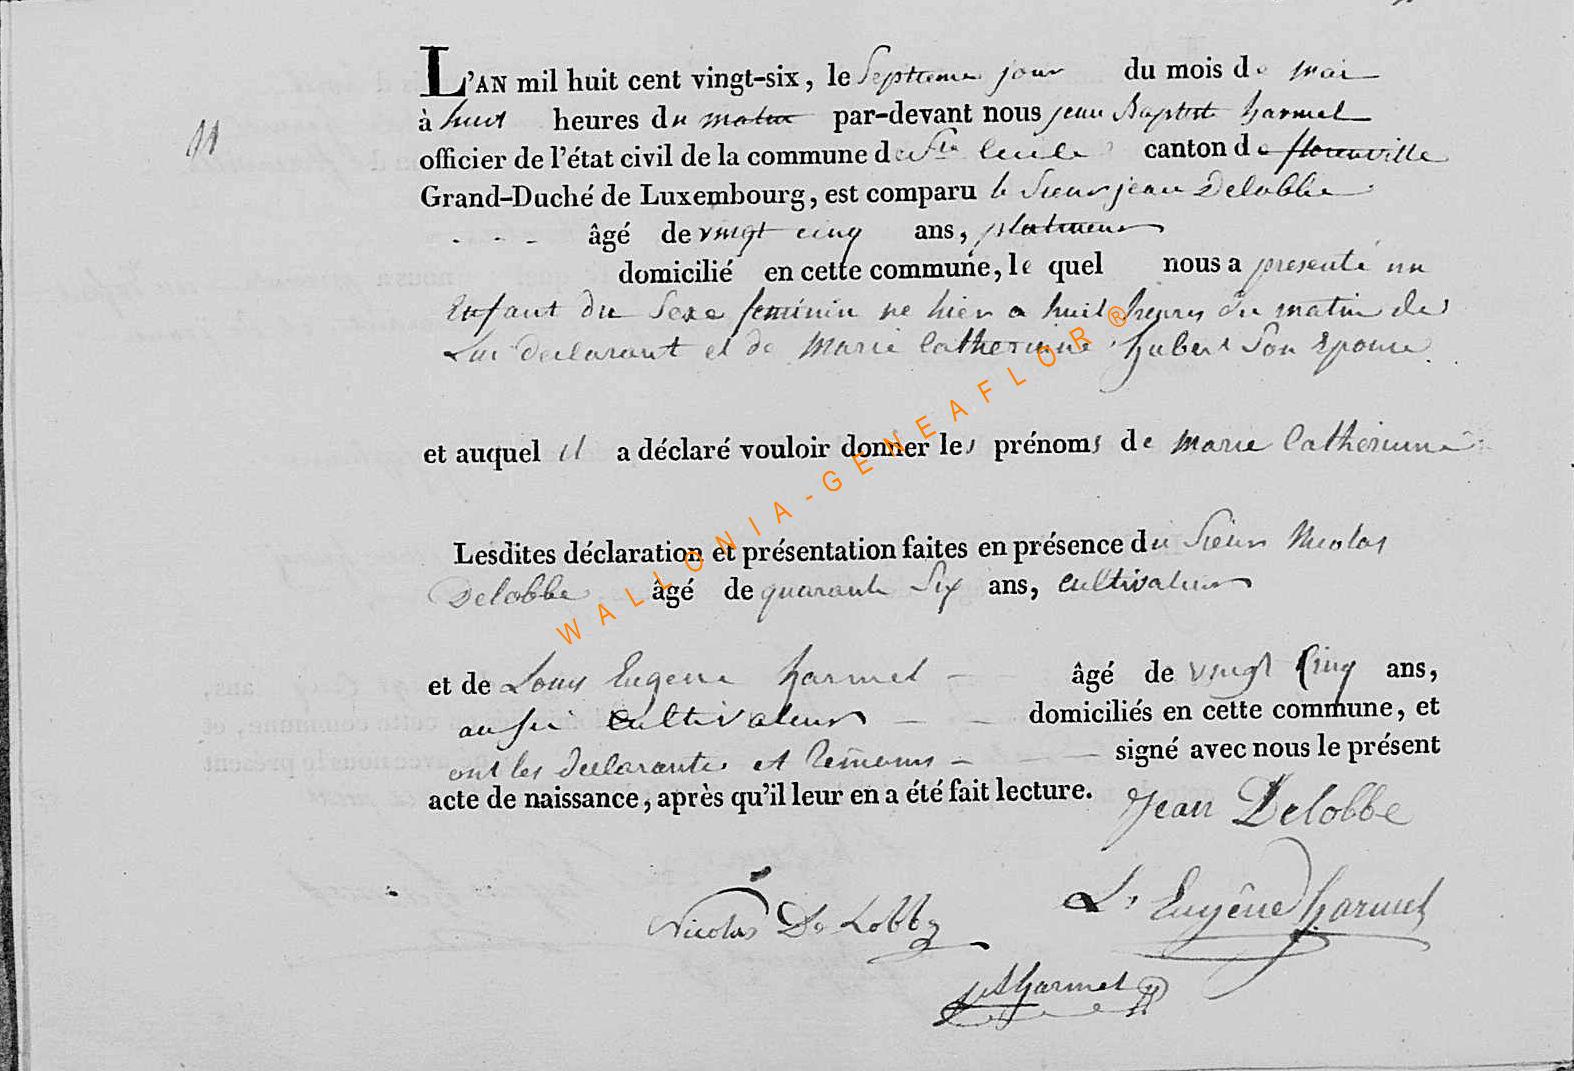 L'AN mil huit cent vingt-six, le Septieme jour du mois de mai
à huit heures du matin par-devant nous jean Baptiste harmel
officier de l'état civil de la commune de Ste Cecile canton de florenville
Grand-Duché de Luxembourg, est comparu le Sieur jean Delobbe
âgé de vingt cinq ans, platineur
domicilié en cette commune, le quel nous a presenté un
Enfant du Sexe feminin né hier a huit heures du matin de
Lui declarant et de Marie Catherinne hubert Son Epouse
et auquel il a déclaré vouloir donner les prénoms de Marie Catherinne
Lesdites déclaration et présentation faites en présence du Sieur Nicolas
Delobbe âgé de quarante Six ans, cultivateur
et de Louis Eugene harmel âgé de vingt Cinq ans,
aussi Cultivateur domiciliés en cette commune, et
ont les declarants et temoins signé avec nous le présent
acte de naissance, après qu'il leur en a été fait lecture.
Jean Delobbe
L. Eugêne harmel
Nicolas De Lobbe
harmel
WALLONIA-GENEAFLOR®